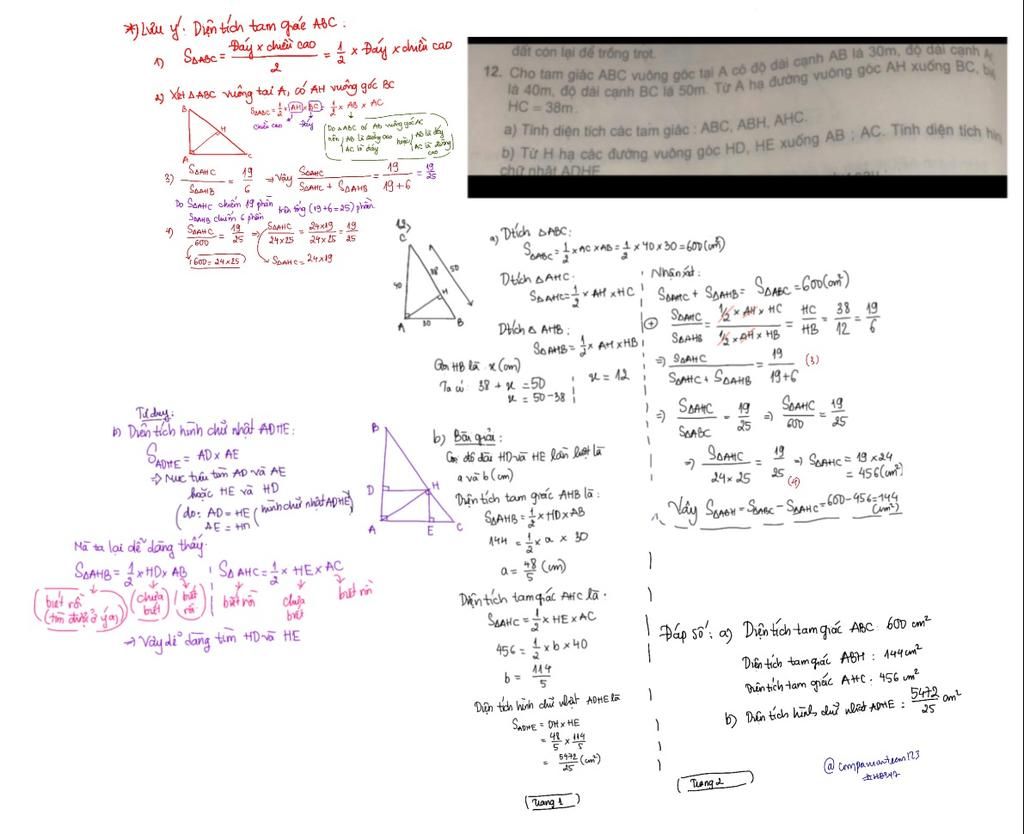 *) Lưu ý: Diện tích tam giác ABC:
1) SΔABC = Đáy x chiều cao / 2 = 1/2 x Đáy x chiều cao
2) Xét ΔABC vuông tại A, có AH vuông góc BC
B
H
A
C
SΔABC = 1/2 x AH x BC = 1/2 x AB x AC
chiều cao
đáy
Do ΔABC có AB vuông góc AC
nên AB là đường cao
AC là đáy
hoặc
AB là đáy
AC là đường cao
3) SΔAHC / SΔAHB = 19/6 ⇒ Vậy SΔAHC / SΔAHC + SΔAHB = 19 / 19+6 = 19/25
Do SΔAHC chiếm 19 phần
SΔAHB chiếm 6 phần
trên tổng (19+6=25) phần
4) SΔAHC / 600 = 19/25 ⇒ SΔAHC / 24x25 = 24x19 / 24x25 = 19/25
600 = 24x25
SΔAHC = 24x19
đất còn lại để trồng trọt.
12. Cho tam giác ABC vuông góc tại A có độ dài cạnh AB là 30m, độ dài cạnh
là 40m, độ dài cạnh BC là 50m. Từ A hạ đường vuông góc AH xuống BC,
HC = 38m.
a) Tính diện tích các tam giác : ABC, ABH, AHC.
b) Từ H hạ các đường vuông góc HD, HE xuống AB ; AC. Tính diện tích
chữ nhật ADHE
12)
C
38
50
40
H
A
30
B
a) Dtích ΔABC:
SΔABC = 1/2 x AC x AB = 1/2 x 40 x 30 = 600 (cm²)
Dtích ΔAHC:
SΔAHC = 1/2 x AH x HC
Dtích ΔAHB:
SΔAHB = 1/2 x AH x HB
Gọi HB là x (cm)
Ta có: 38 + x = 50
x = 50 - 38
x = 12
Nhận xét:
SΔAHC + SΔAHB = SΔABC = 600 (cm²)
+ SΔAHC / SΔAHB = 1/2 x AH x HC / 1/2 x AH x HB = HC/HB = 38/12 = 19/6
⇒ SΔAHC / SΔAHC + SΔAHB = 19 / 19+6 (3)
⇒ SΔAHC / SΔABC = 19/25 ⇒ SΔAHC / 600 = 19/25
⇒ SΔAHC / 24 x 25 = 19/25 (4) ⇒ SΔAHC = 19 x 24
= 456 (cm²)
Vậy SΔABH = SΔABC - SΔAHC = 600 - 456 = 144 (cm²)
Tư duy:
b) Diện tích hình chữ nhật ADHE:
SADHE = AD x AE
⇒ Mục tiêu tìm AD và AE
hoặc HE và HD
(do: AD = HE
AE = HD
(hình chữ nhật ADHE))
Mà ta lại dễ dàng thấy:
SΔAHB = 1/2 x HD x AB
SΔAHC = 1/2 x HE x AC
biết rồi
(tìm được ở ý a)
chưa biết
biết rồi
biết rồi
chưa biết
biết rồi
⇒ Vậy dễ dàng tìm HD và HE
B
D
H
A
E
C
b) Bài giải:
Gọi độ dài HD và HE lần lượt là
a và b (cm)
Diện tích tam giác AHB là:
SΔAHB = 1/2 x HD x AB
144 = 1/2 x a x 30
a = 48/5 (cm)
Diện tích tam giác AHC là:
SΔAHC = 1/2 x HE x AC
456 = 1/2 x b x 40
b = 114/5
Diện tích hình chữ nhật ADHE là
SADHE = DH x HE
= 48/5 x 114/5
= 5472/25 (cm²)
Trang 1
Đáp số: a) Diện tích tam giác ABC: 600 cm²
Diện tích tam giác ABH: 144 cm²
Diện tích tam giác AHC: 456 cm²
b) Diện tích hình chữ nhật ADHE: 5472/25 cm²
Trang 2
@companionteam123